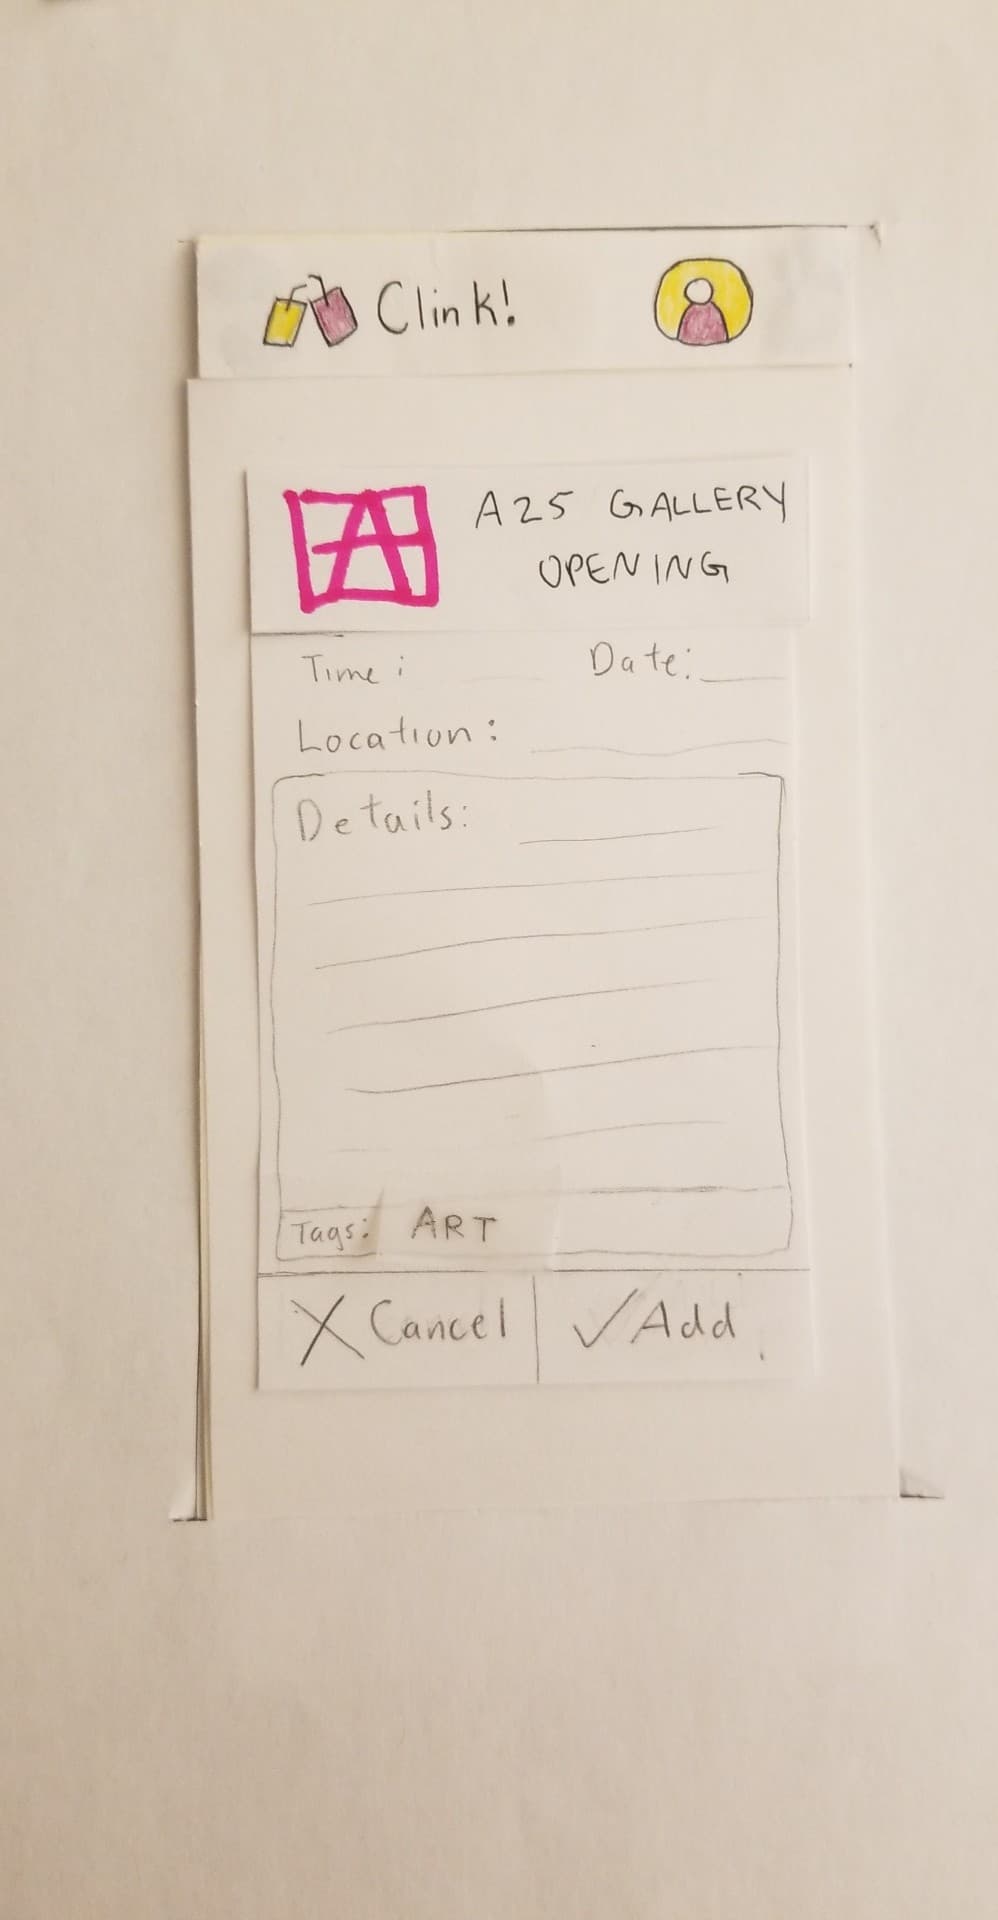 Clink!
A
A25 GALLERY
OPENING
Time: Date:
Location:
Details:
Tags: ART
X Cancel ✓ Add